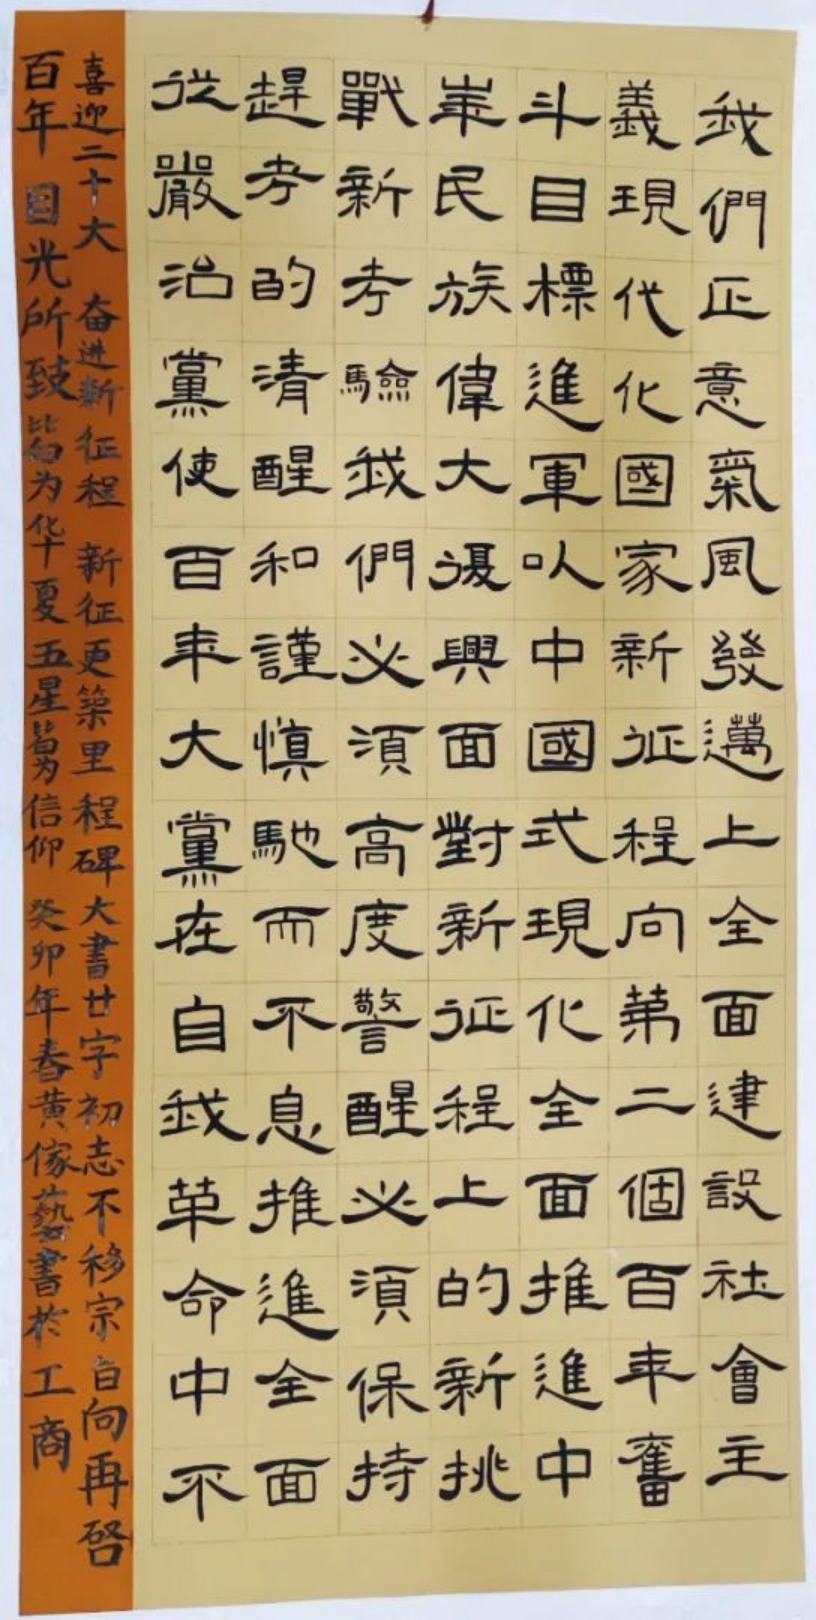 我們正意氣風發邁上全面建設社會主
義現代化國家新征程向第二個百年奮
斗目標進軍以中國式現化全面推進中
華民族偉大復興面對新征程上的新挑
戰新考驗我們必須高度警醒必須保持
趕考的清醒和謹慎馳而不息推進全面
從嚴治黨使百年大黨在自我革命中不
喜迎二十大 奋进新征程 新征更築里程碑 大書廿字初志不移宗旨向再啓
百年 目光所致皆为华夏 五星皆为信仰 癸卯年春黄傢藝書於工商